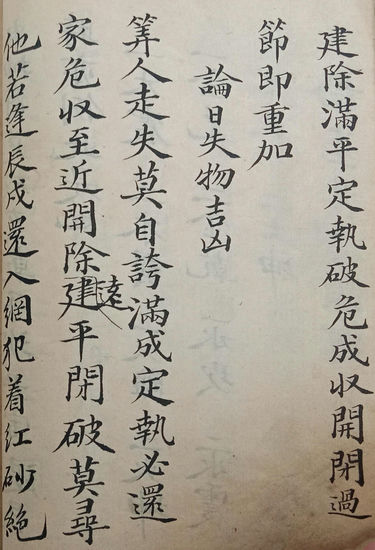 建除滿平定執破危成収開閉過
節即重加
論日失物吉凶
筭人走失莫自誇滿成定執必還
家危収至近開除建遠平閉破莫尋
他若逢辰戌還入網犯着紅砂絶